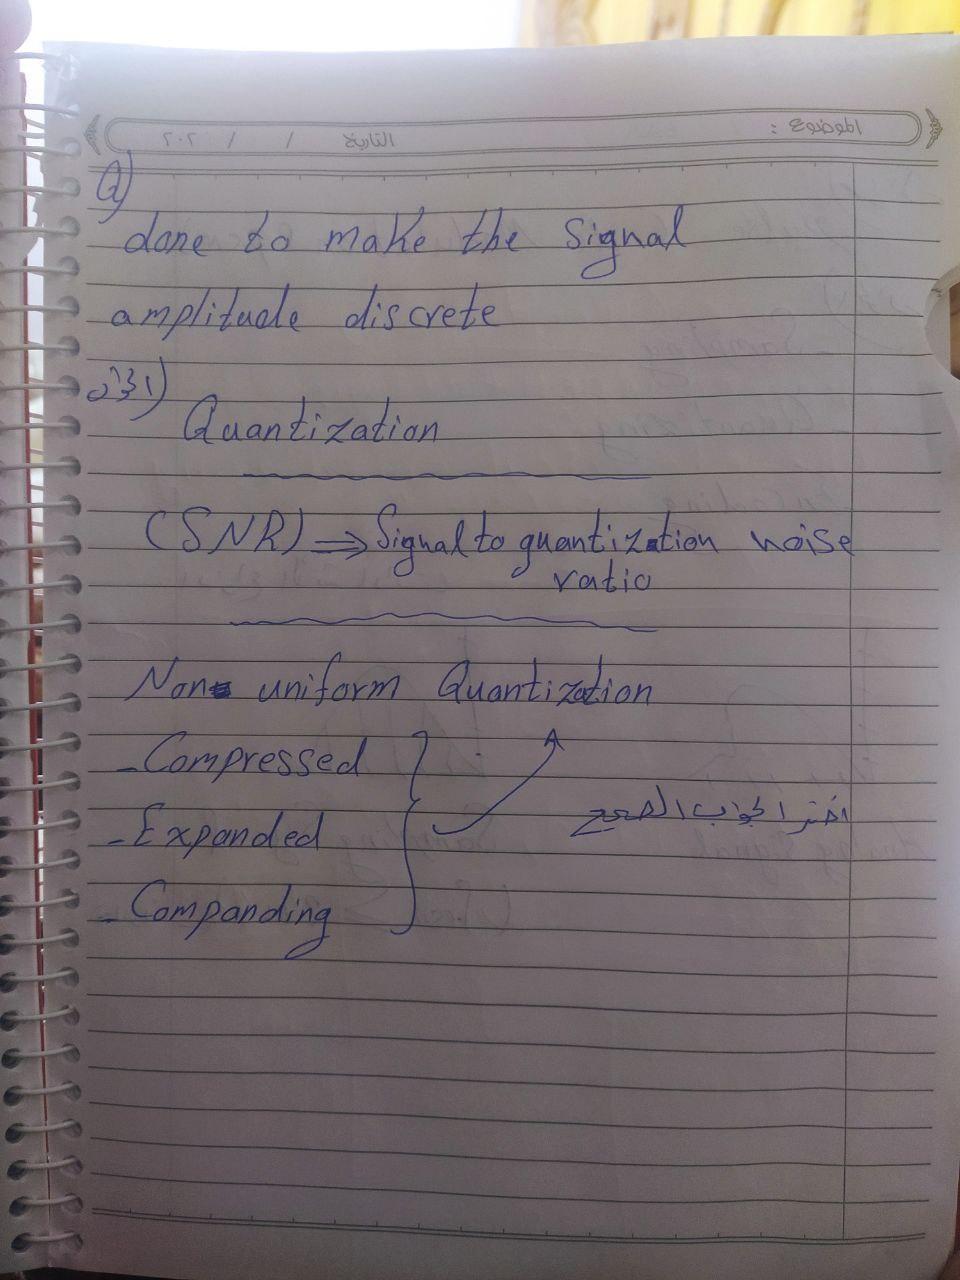 الموضوع :
التاريخ / / ٢٠٢
Q)
done to make the signal
amplitude discrete
Quantization
(SNR) ⇒ Signal to quantization noise
ratio
Non uniform Quantization
- Compressed
- Expanded
اختر الجواب الصحيح
- Companding